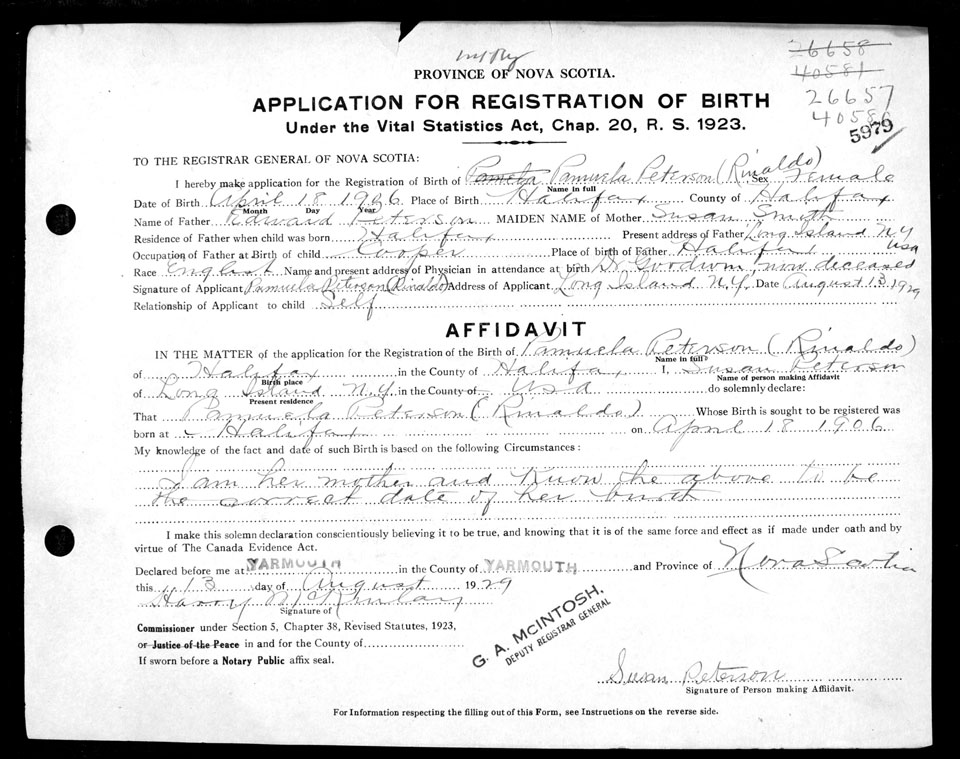 26658
PROVINCE OF NOVA SCOTIA.
40581
APPLICATION FOR REGISTRATION OF BIRTH
26657
Under the Vital Statistics Act, Chap. 20, R. S. 1923.
40586
5979
TO THE REGISTRAR GENERAL OF NOVA SCOTIA:
I hereby make application for the Registration of Birth of Pamela Pamuela Peterson (Rinaldo) Sex Female
Name in full
Date of Birth April 18 1906 Place of Birth Halifax County of Halifax
Month Day Year
Name of Father Edward Peterson MAIDEN NAME of Mother Susan Smith
Residence of Father when child was born Halifax Present address of Father Long Island NY USA
Occupation of Father at Birth of child Cooper Place of birth of Father Halifax
Race English Name and present address of Physician in attendance at birth Dr Goodwin, now deceased
Signature of Applicant Pamuela Peterson (Rinaldo) Address of Applicant Long Island N.Y. Date August 13 1929
Relationship of Applicant to child Self
AFFIDAVIT
IN THE MATTER of the application for the Registration of the Birth of Pamuela Peterson (Rinaldo)
Name in full
of Halifax in the County of Halifax, I, Susan Peterson
Birth place Name of person making Affidavit
of Long Island N.Y. in the County of USA do solemnly declare:
Present residence
That Pamuela Peterson (Rinaldo) Whose Birth is sought to be registered was
born at Halifax on April 18 1906
My knowledge of the fact and date of such Birth is based on the following Circumstances:
I am her mother and know the above to be
the correct date of her birth
I make this solemn declaration conscientiously believing it to be true, and knowing that it is of the same force and effect as if made under oath and by
virtue of The Canada Evidence Act.
Declared before me at YARMOUTH in the County of YARMOUTH and Province of Nova Scotia
this 13 day of August 1929
Harry
Signature of
Commissioner under Section 5, Chapter 38, Revised Statutes, 1923,
or Justice of the Peace in and for the County of
If sworn before a Notary Public affix seal.
G. A. MCINTOSH,
DEPUTY REGISTRAR GENERAL
Susan Peterson
Signature of Person making Affidavit.
For Information respecting the filling out of this Form, see Instructions on the reverse side.